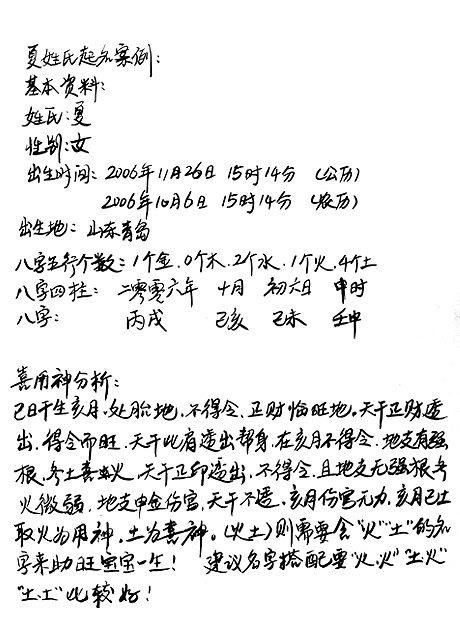 夏姓氏起名案例:
基本资料:
姓氏:夏
性别:女
出生时间: 2006年11月26日 15时14分 (公历)
2006年10月6日 15时14分 (农历)
出生地: 山东青岛
八字五行个数: 1个金、0个木、2个水、1个火、4个土
八字四柱: 二零零六年 十月 初六日 申时
八字: 丙戌 己亥 己未 壬申
喜用神分析:
己日干生亥月,处胎地,不得令、正财临旺地。天干正财透
出,得令而旺、天干比肩透出帮身,在亥月不得令、地支有强
根、冬土喜火,天干正印透出,不得令,且地支无强根,冬
火微弱,地支申金伤官,天干不透、亥月伤官无力,亥月己土
取火为用神,土为喜神。(火土)则需要含"火""土"的名
字来助旺宝宝一生! 建议名字搭配要"火.火""土.火"
"土.土"比较好!